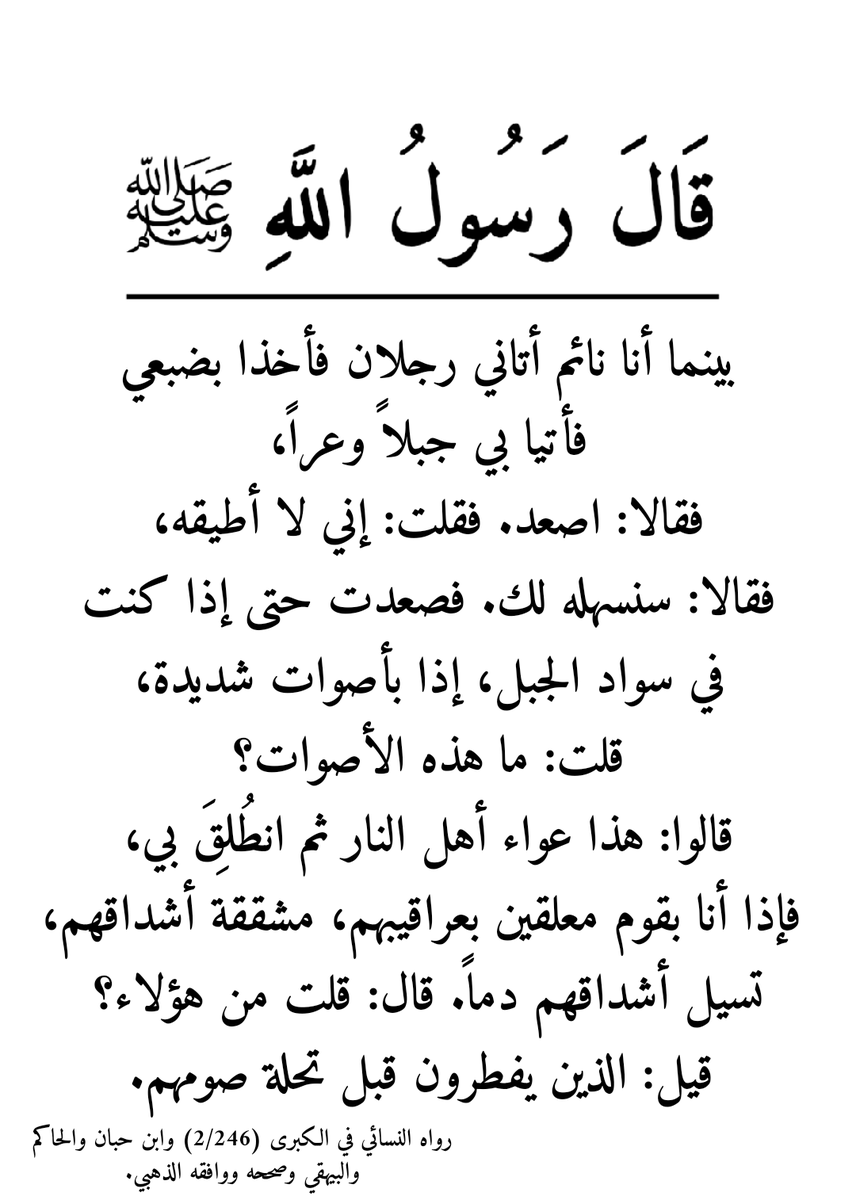 قَالَ رَسُولُ اللَّهِ ﷺ
بينما أنا نائم أتاني رجلان فأخذا بضبعي
فأتيا بي جبلاً وعراً،
فقالا: اصعد. فقلت: إني لا أطيقه،
فقالا: سنسهله لك. فصعدت حتى إذا كنت
في سواد الجبل، إذا بأصوات شديدة،
قلت: ما هذه الأصوات؟
قالوا: هذا عواء أهل النار ثم انطُلِقَ بي،
فإذا أنا بقوم معلقين بعراقيبهم، مشققة أشداقهم،
تسيل أشداقهم دماً. قال: قلت من هؤلاء؟
قيل: الذين يفطرون قبل تحلة صومهم.
رواه النسائي في الكبرى (2/246) وابن حبان والحاكم
والبيهقي وصححه ووافقه الذهبي.